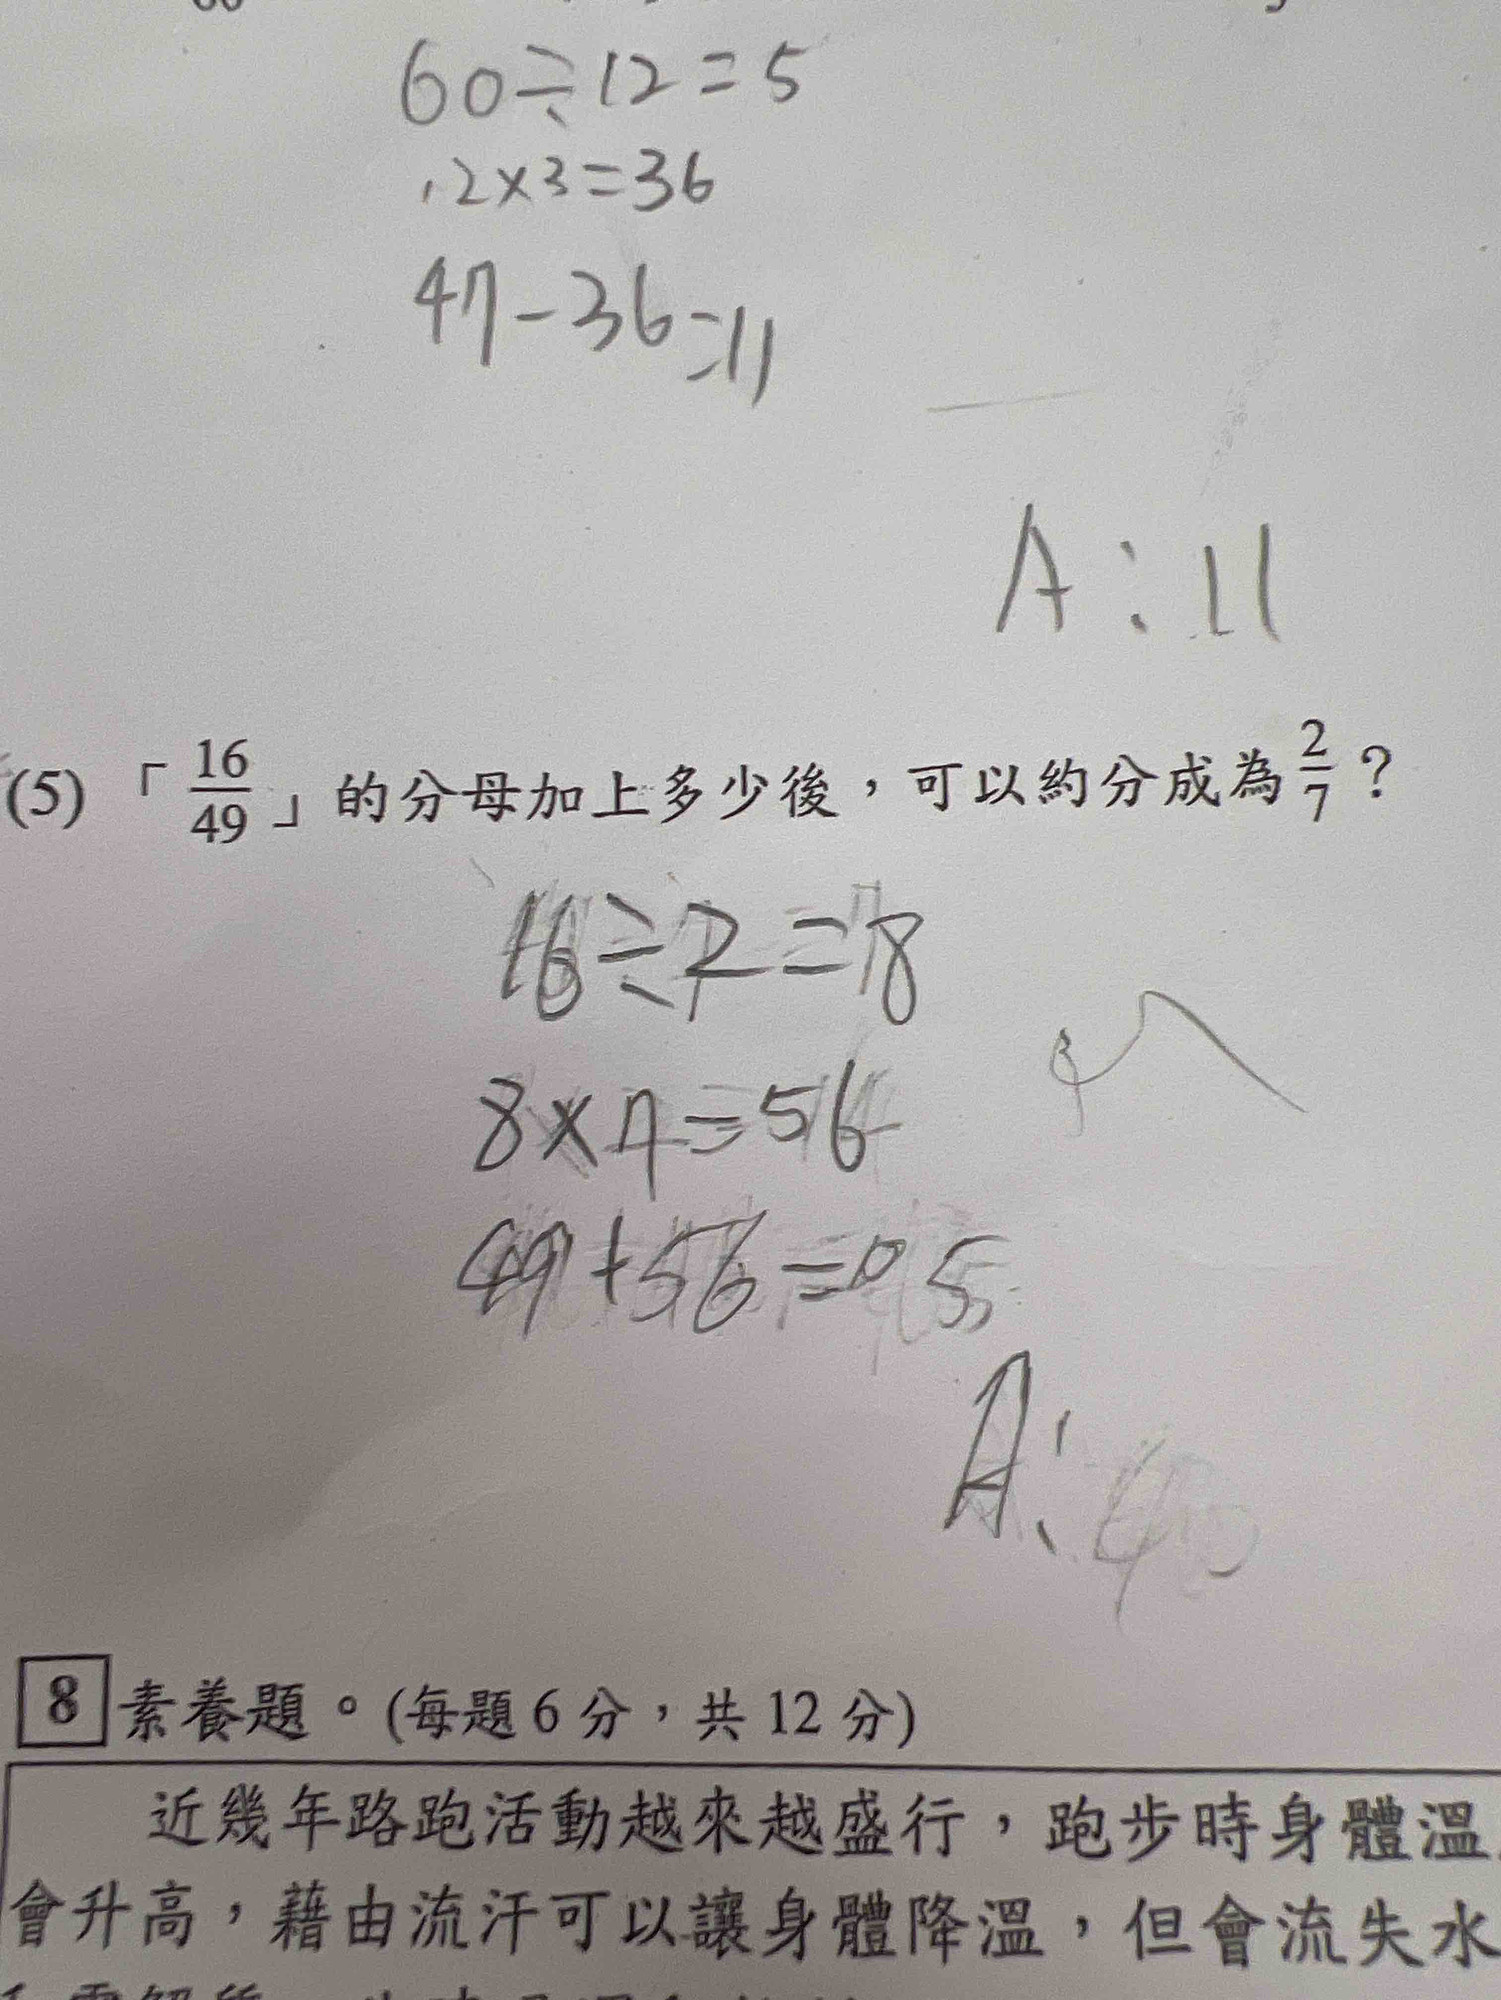 60÷12=5
12×3=36
47-36=11
A:11
(5)「16/49」的分母加上多少後，可以約分成為2/7？
16÷2=8
8×7=56
49+56=05
A:
8 素養題。(每題6分，共12分)
近幾年路跑活動越來越盛行，跑步時身體溫
會升高，藉由流汗可以讓身體降溫，但會流失水